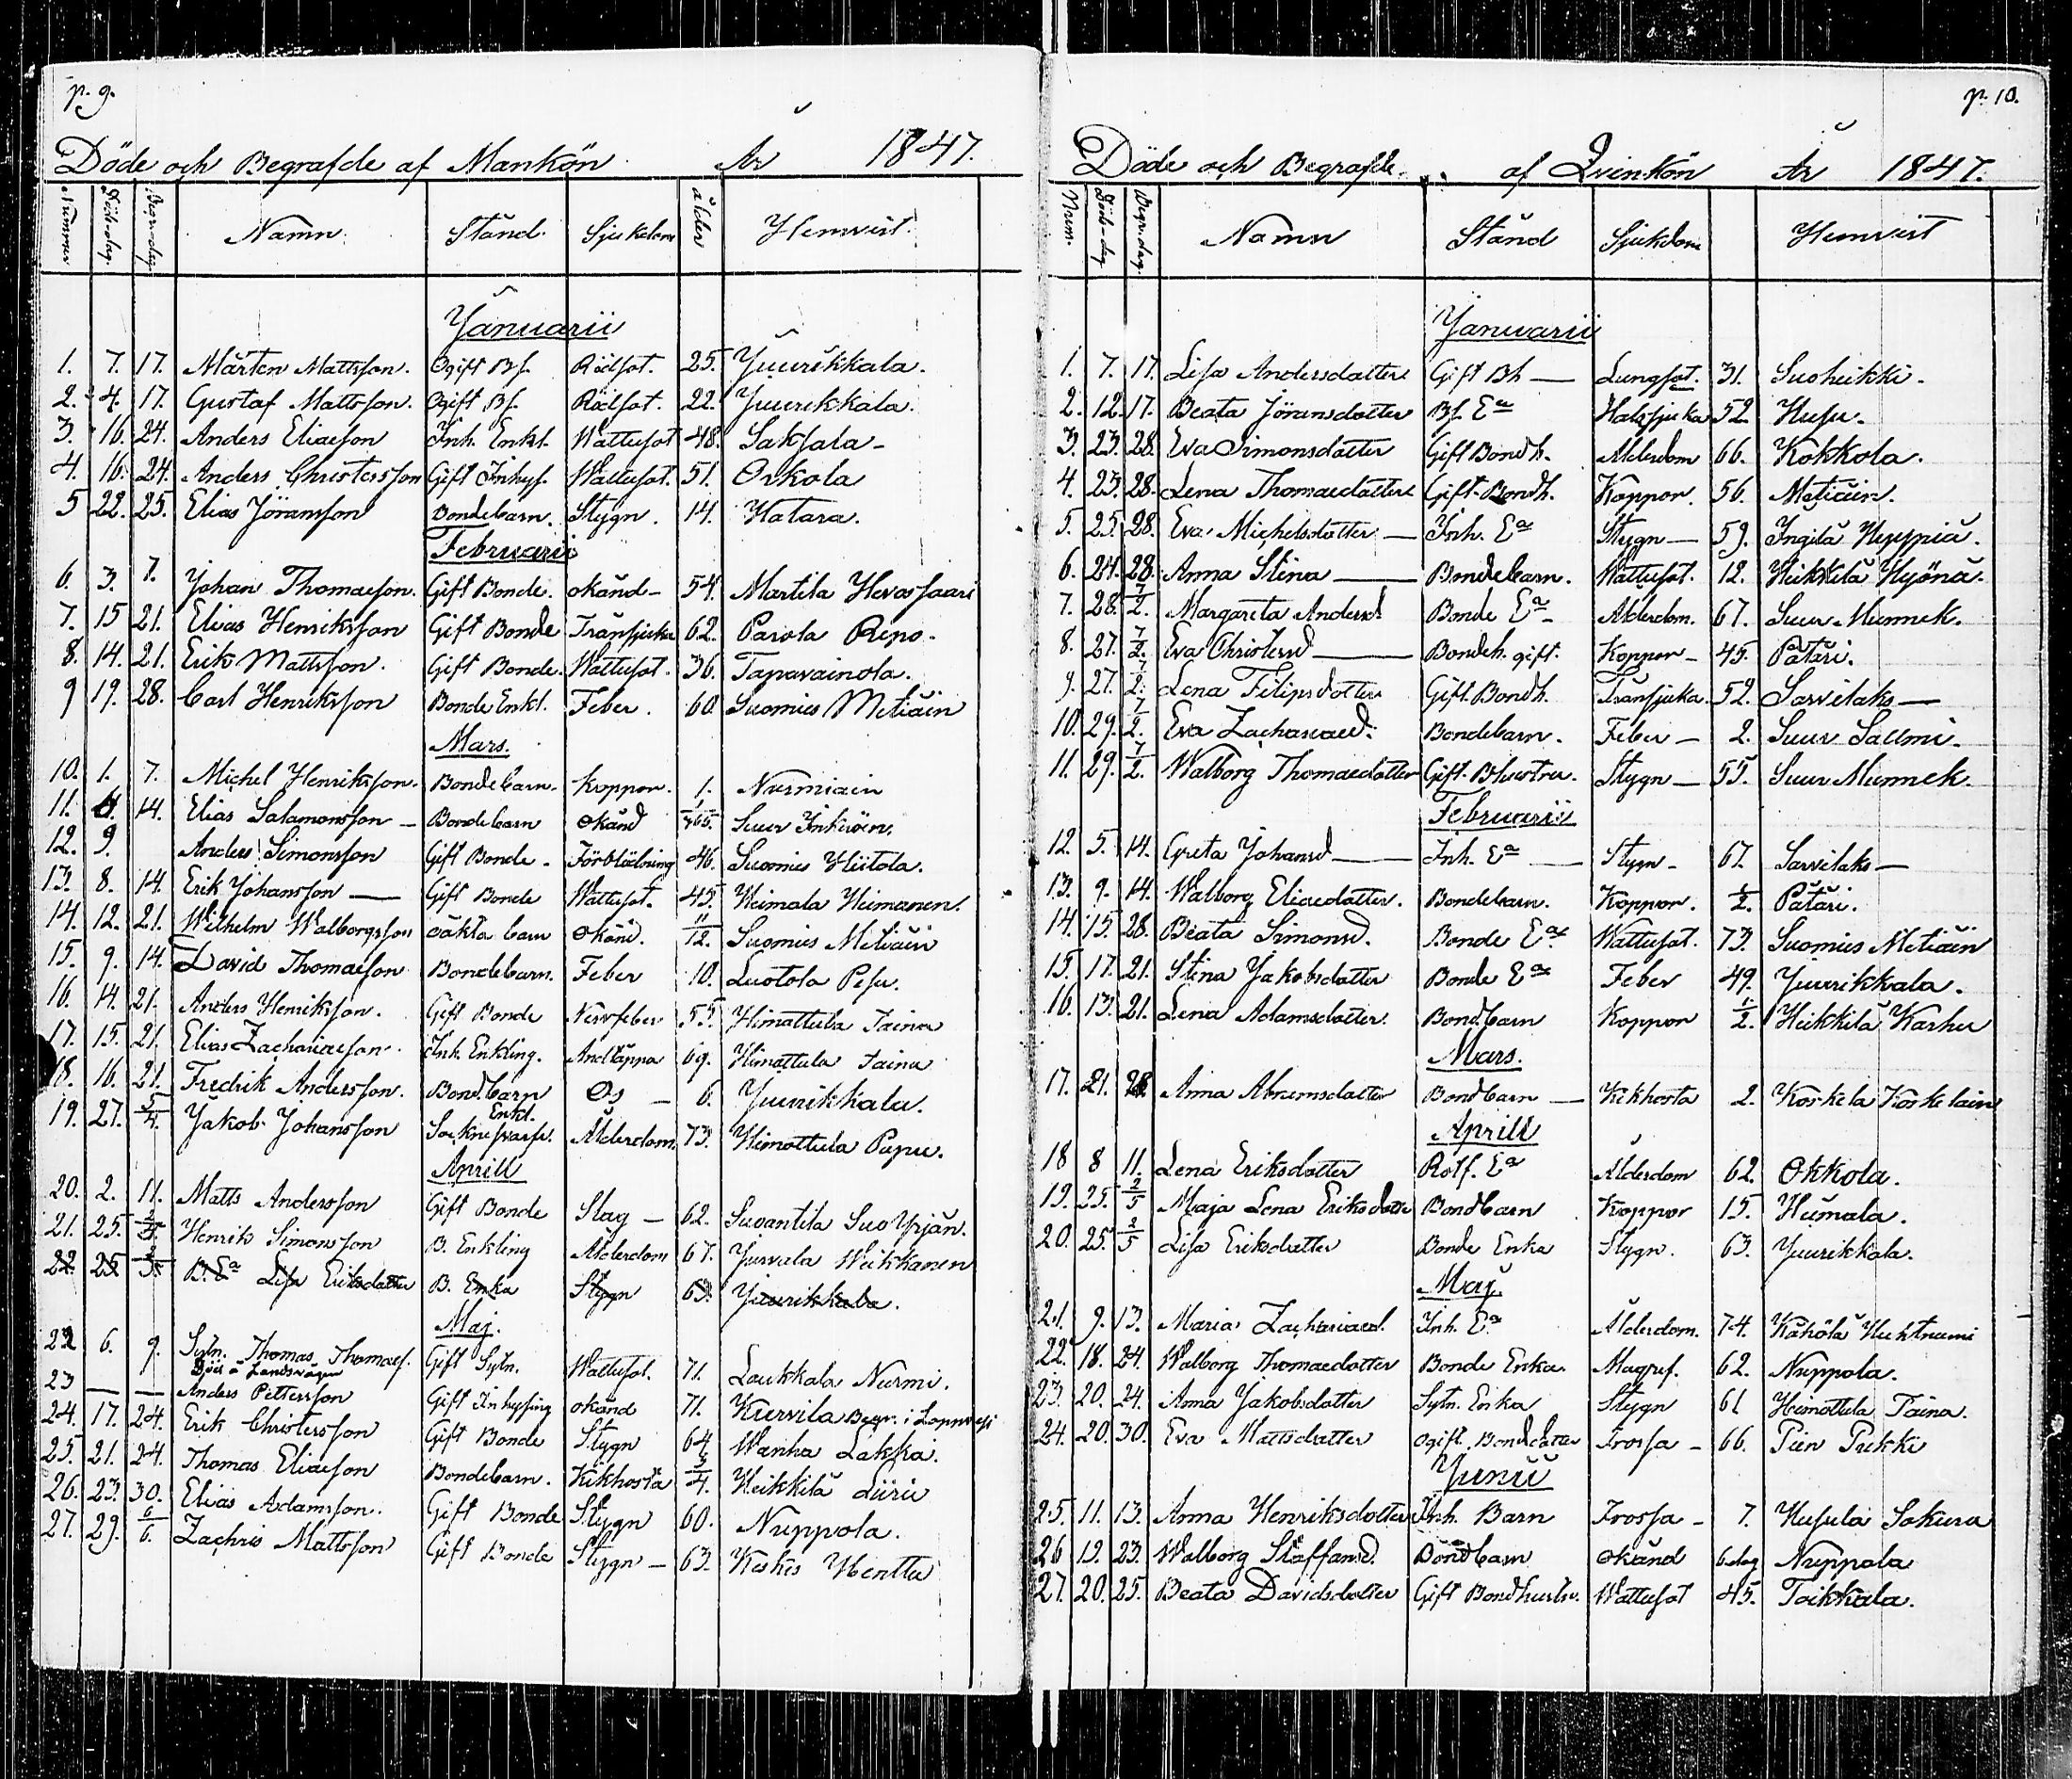 p. 9.
Döde och Begrafde af Mankön År 1847.
Nummer Död-dag. Begr.-dag. Namn. Stånd. Sjukdom ålder Hemvist.
Januarii
1. 7. 17. Mårten Mattsson. Ogift Bs. Rödsot. 25. Juurikkala.
2. 4. 17. Gustaf Mattsson. Ogift Bs. Rödsot. 22. Juurikkala.
3. 16. 24. Anders Eliaeson Inh. Enkl. Wattusot 48. Saksala -
4. 16. 24. Anders Christersson Gift Inhys. Wattusot. 51. Orkola
5 22. 25. Elias Jöransson Bondebarn. Stygn. 14. Hatara.
Februarii
6. 3. 7. Johan Thomaeson. Gift Bonde. okänd - 54. Martila Hevossaari
7. 15 21. Elias Henriksson Gift Bonde Trånsjuka 62. Parola Repo.
8. 14. 21. Erik Mattsson. Gift Bonde. Wattusot. 36. Tapavainola.
9 19. 28. Carl Henriksson Bonde Enkl. Feber. 60. Suomies Metiäin
Mars.
10. 1. 7. Michel Henriksson. Bondebarn. Koppor. 1. Nurmiain
11. 4. 14. Elias Salamonsson - Bondebarn okänd 1/365. Suur Inkiöin.
12. 9. Anders Simonsson Gift Bonde - Förblödning 46. Suomies Hiitola.
13. 8. 14. Erik Johansson — Gift Bonde Wattusot. 45. Heimala Heimanen.
14. 12. 21. Wilhelm Walborgsson oäkta barn okänd. 11/12. Suomies Metiäin
15. 9. 14. David Thomaeson Bondebarn. Feber 10. Luotola Pesu.
16. 14. 21. Anders Henriksson. Gift Bonde Nervfeber 55. Himottula Taina
17. 15. 21. Elias Zachariaeson. Inh. Enkling. Andtäppa 69. Himottula Taina
18. 16. 21. Fredrik Andersson. Bondbarn Os - 6. Juurikkala.
19. 27. 5/4. Jakob Johansson Sockneskräddr. Enkl. Ålderdom. 73. Himottula Papu.
Aprill
20. 2. 11. Matts Andersson Gift Bonde Slag - 62. Suoantila Suo Yrjän.
21. 25. 2/5. Henrik Simonsson B. Enkling Ålderdom 67. Jurvala Weikkanen
22. 25 2/5. B. Ea Lisa Eriksdotter B. Enka Stygn 63. Juurikkala.
Maj.
22 6. 9. Sytn. Thomas Thomaes. Gift Sytn. Wattusot. 71. Laukkala Nurmi.
Död å Landsvägen
23 — — Anders Pettersson Gift Inhysing okänd 71. Kurvila Begr. i Lappvesi
24. 17. 24. Erik Christersson Gift Bonde Stygn 64 Wanha Lakka.
25. 21. 24. Thomas Eliaeson Bondebarn. Kikhosta 3/4. Heikkilä Liiru
26. 23. 30. Elias Adamsson. Gift Bonde Stygn 60. Nuppola.
27. 29. 6/6. Zachris Mattsson Gift Bonde Stygn - 63. Keskis Henttu
p. 10.
Döde och Begrafde af Qvinkön År 1847.
Num. Död-dag Begr.dag. Namn Stånd Sjukdom Hemvist
Januarii
1. 7. 17. Lisa Andersdotter Gift Bh — Lungsot. 31. Suoheikki.
2. 12. 17. Beata Jöransdotter Bs. Ea Halssjuka 52. Husu.
3. 23. 28. Eva Simonsdotter Gift Bondh. Ålderdom 66. Kokkola.
4. 23. 28. Lena Thomaedotter Gift Bondh. Koppor. 56. Metiäin.
5. 25. 28. Eva Michelsdotter — Inh. Ea Stygn — 59. Ingilä Heppiä.
6. 24. 28. Anna Stina — Bondebarn. Wattusot. 12. Heikkilä Hyönä.
7. 28. 7/2. Margareta Andersd Bonde Ea - Ålderdom. 67. Suur Munnek.
8. 27. 7/2. Eva Christersd — Bondeh. gift. Koppor - 45. Pätäri.
9. 27. 7/2. Lena Filipsdotter Gift. Bondh. Trånsjuka. 52. Sarvilaks —
10. 29. 7/2. Eva Zachariaed. Bondebarn. Feber - 2. Suur Salmi.
11. 29. 7/2. Walborg Thomaedotter Gift. Bhustru. Stygn - 55. Suur Munnek.
Februarii
12. 5. 14. Greta Johansd — Inh. Ea — Stygn - 67. Sarvilaks —
13. 9. 14. Walborg Eliaedotter. Bondebarn. Koppor. 1/2. Pätäri.
14. 15. 28. Beata Simonsd. Bonde Ea Wattusot. 73. Suomies Metiäin
15. 17. 21. Stina Jakobsdotter Bonde Ea Feber 49. Juurikkala.
16. 13. 21. Lena Adamsdotter. Bondbarn Koppor 1/2. Heikkilä Karhu
Mars.
17. 21. 28 Anna Abramsdotter Bondbarn — Kikhosta 2. Koskela Koskelain
Aprill
18 8 11. Lena Eriksdotter Rotf. Ea Ålderdom 62. Okkola.
19. 25. 2/5 Maja Lena Eriksdotter Bondbarn Koppor 15. Humala.
20. 25. 2/5 Lisa Eriksdotter Bonde Enka Stygn. 63. Juurikkala.
Maj.
21. 9. 13. Maria Zachariaed. Inh. Ea Ålderdom. 74. Kähölä Huhtniemi
22. 18. 24. Walborg Thomaedotter Bonde Enka. Magref. 62. Nuppola.
23. 20. 24. Anna Jakobsdotter Sytn. Enka Stygn 61 Himottula Taina.
24. 20. 30. Eva Mattsdotter ogift Bonddotter Frossa - 66. Pien Pukki
Junii
25. 11. 13. Anna Henriksdotter Inh. Barn Frossa - 7. Husula Sokura
26 19. 23. Walborg Staffansd. Bondbarn okänd 6 dag Nuppola
27. 20. 25. Beata Davidsdotter Gift Bondhustr. Wattusot 45. Toikkala.